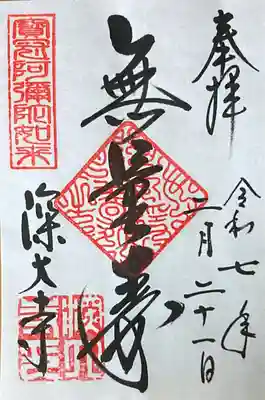 奉拝
令和七年
二月二十一日
無量壽
寶冠阿彌陀如来
深大寺